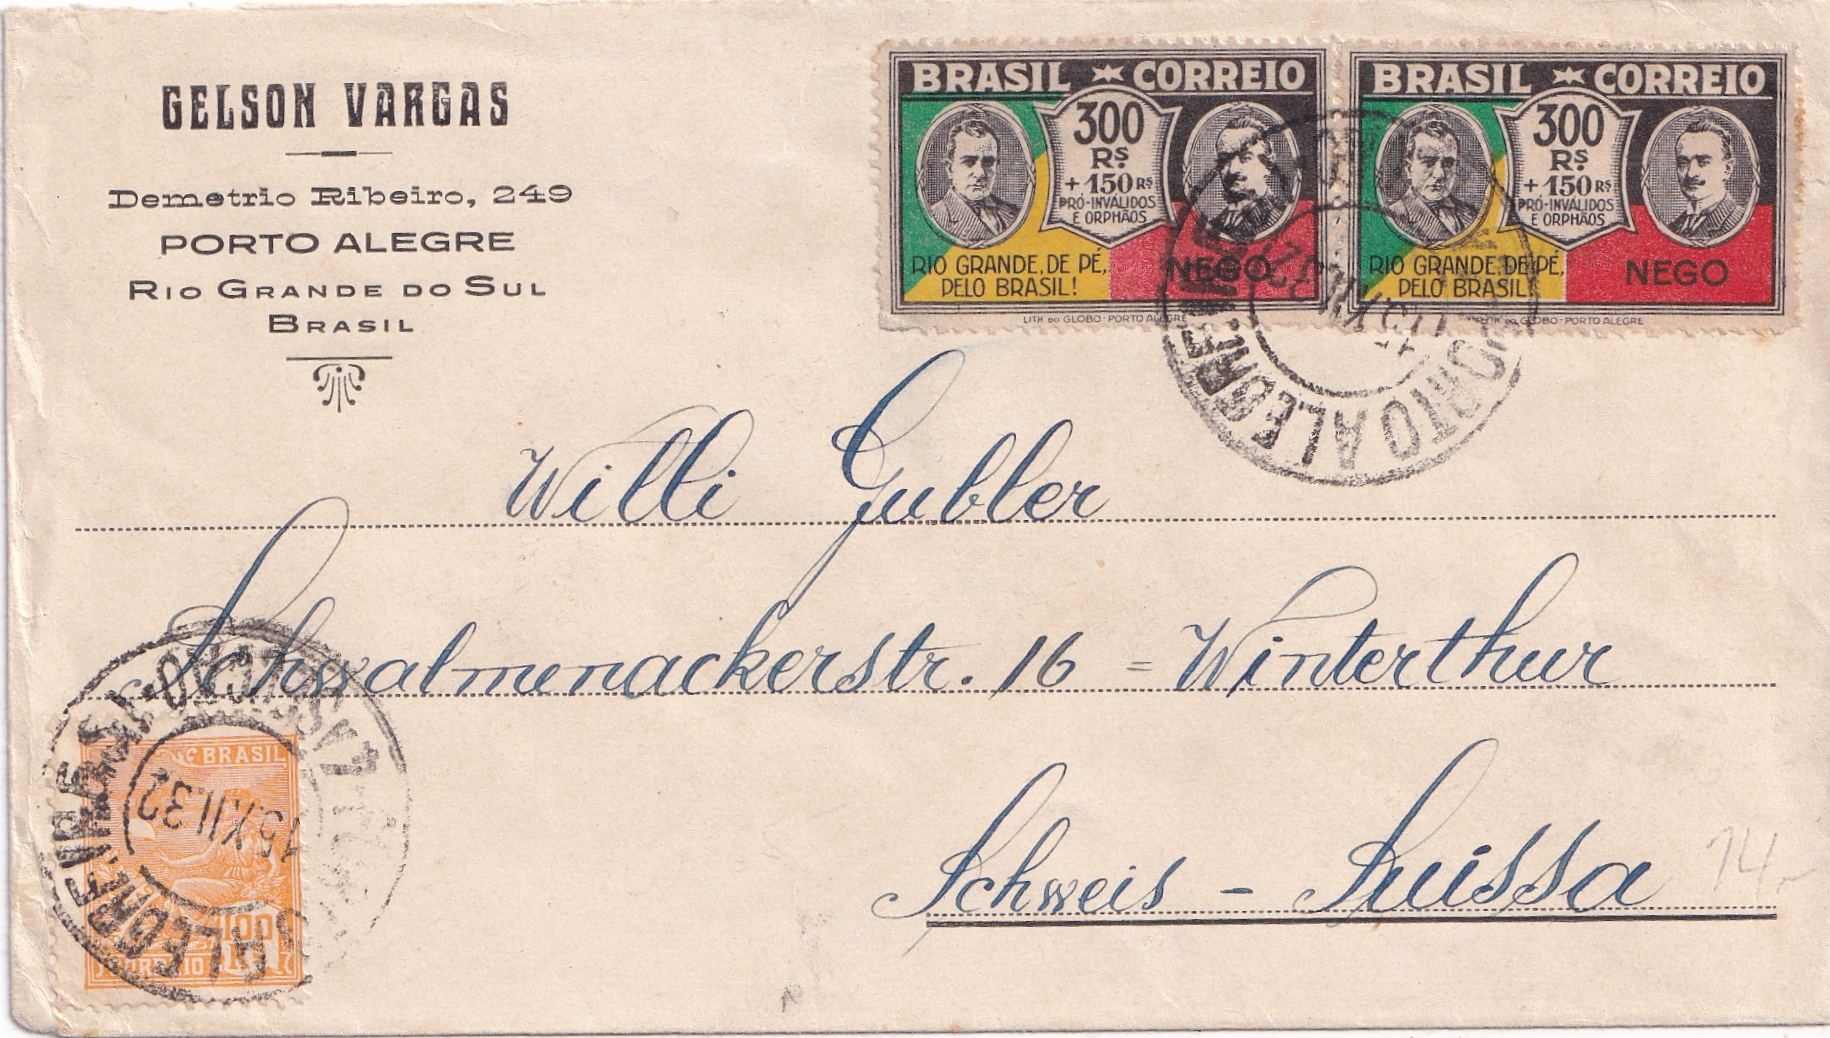 GELSON VARGAS
Demetrio Ribeiro, 249
PORTO ALEGRE
RIO GRANDE DO SUL
BRASIL
BRASIL CORREIO
300
RS
+ 150 RS
PRÓ-INVÁLIDOS
E ORPHÃOS
RIO GRANDE, DE PÉ,
PELO BRASIL!
NEGO
LITH. DO GLOBO - PORTO ALEGRE
BRASIL CORREIO
300
RS
+ 150 RS
PRÓ-INVÁLIDOS
E ORPHÃOS
RIO GRANDE, DE PÉ,
PELO BRASIL!
NEGO
DO GLOBO - PORTO ALEGRE
PORTO ALEGRE
Willi Gubler
Schwalmenackerstr. 16 = Winterthur
Schweis - Suissa
14
BRASIL
100
CORREIO
ALEGRE
15.XII.32